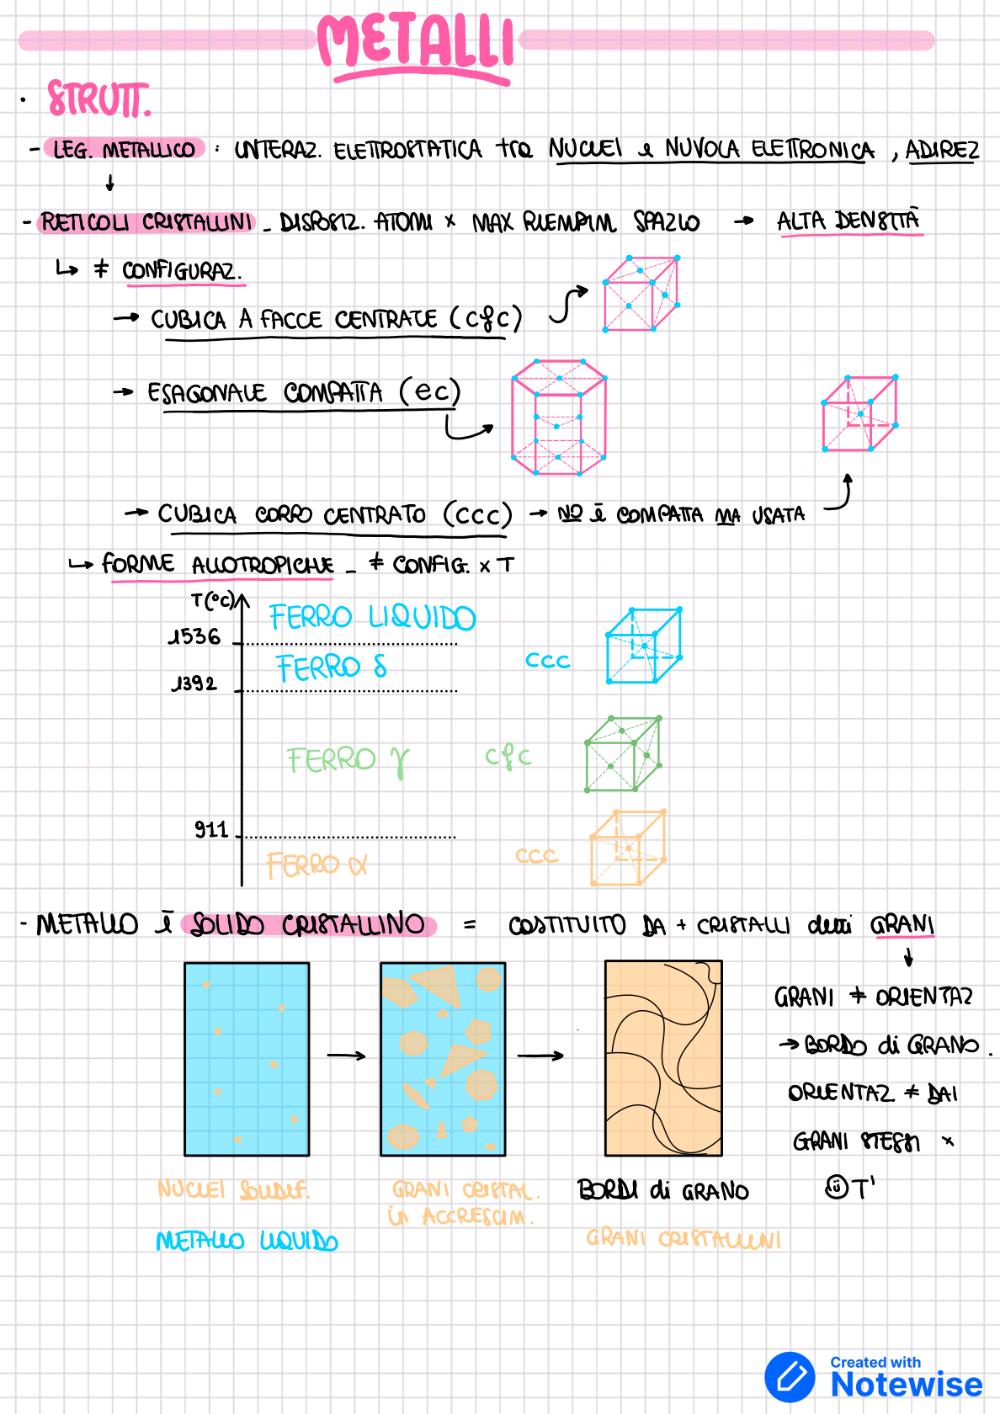 METALLI
· STRUTT.
- LEG. METALLICO : INTERAZ. ELETTROSTATICA tra NUCLEI e NUVOLA ELETTRONICA , ADIREZ
↓
- RETICOLI CRISTALLINI _ DISPOSIZ. ATOMI × MAX RIEMPIM. SPAZIO → ALTA DENSITÀ
↳ ≠ CONFIGURAZ.
→ CUBICA A FACCE CENTRATE (cfc)
→ ESAGONALE COMPATTA (ec)
→ CUBICA CORPO CENTRATO (ccc) → NO È COMPATTA MA USATA
↳ FORME ALLOTROPICHE _ ≠ CONFIG. × T
T(°C)
FERRO LIQUIDO
1536
FERRO δ ccc
1392
FERRO γ cfc
911
FERRO α ccc
- METALLO È SOLIDO CRISTALLINO = COSTITUITO DA + CRISTALLI detti GRANI
↓
GRANI ≠ ORIENTAZ
→ BORDO di GRANO .
ORIENTAZ ≠ DAI
GRANI STESSI ×
T'
NUCLEI SOLIDIF.
METALLO LIQUIDO
GRANI CRISTAL.
in ACCRESCIM.
BORDI di GRANO
GRANI CRISTALLINI
Created with
Notewise